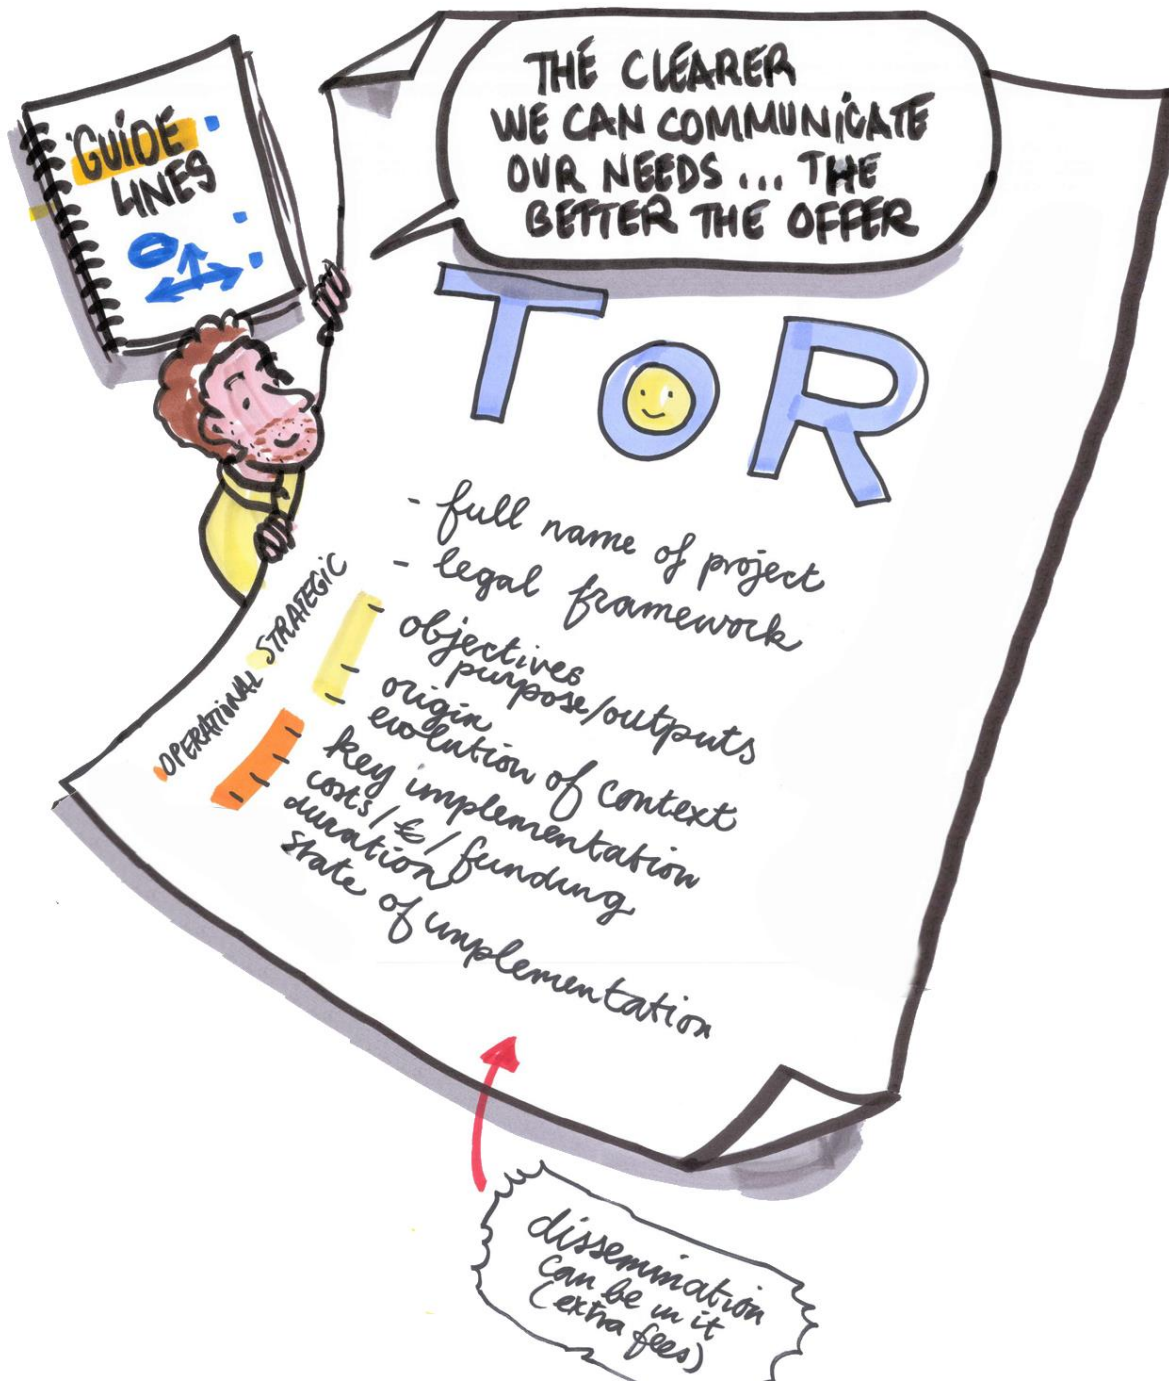 GUIDE
LINES
THE CLEARER
WE CAN COMMUNICATE
OUR NEEDS ... THE
BETTER THE OFFER
TOR
- full name of project
- legal framework
OPERATIONAL STRATEGIC
- objectives
purpose/outputs
- origin
- evolution of context
- key implementation
- costs/€/funding
- duration
- state of implementation
dissemination
can be in it
(extra fees)